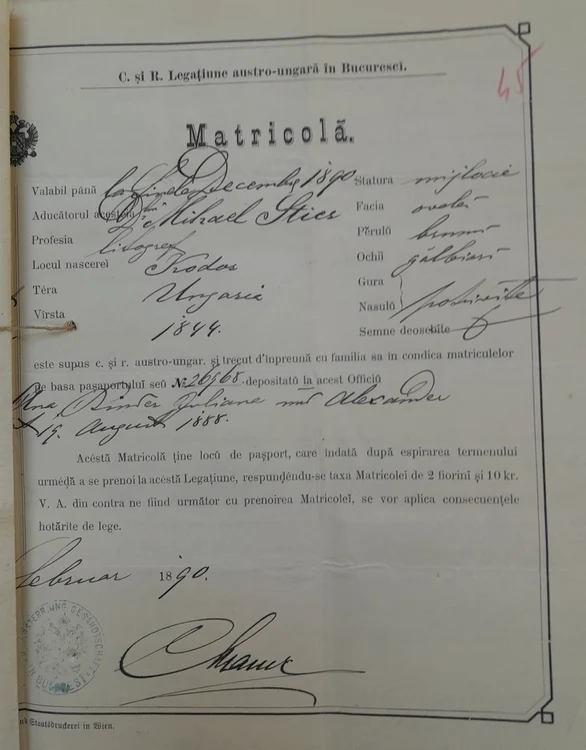 C. și R. Legațiune austro-ungară în Bucuresci.
45
Matricolă.
Valabil până la Decembre 1890
Aducătorul acesteia Mihael Stier
Profesia litograf
Locul nascerei Kodos
Țéra Ungaria
Vîrsta 1844.
Statura mijlocie
Facia ovală
Pĕrulŭ brunŭ
Ochii gălbiori
Gura
Nasulŭ potrivite
Semne deosebite
este supus c. și r. austro-ungar. și trecut d'inpreună cu familia sa în condica matriculelor
pe basa pașaportului seŭ № 26968 depositatŭ la acest Officiŭ
Binder Juliane Alexander
19. August 1888.
Acéstă Matricolă ține locŭ de pașport, care îndată după espirarea termenului
urméḑă a se prenoi la acéstă Legațiune, respunḑêndu-se taxa Matricolei de 2 fiorini și 10 kr.
V. A. din contra ne fiind următor cu prenoirea Matricolei, se vor aplica consecuențele
hotărite de lege.
Februar 1890.
UNG GESANDTSCHAFT
Staatsdruckerei in Wien.